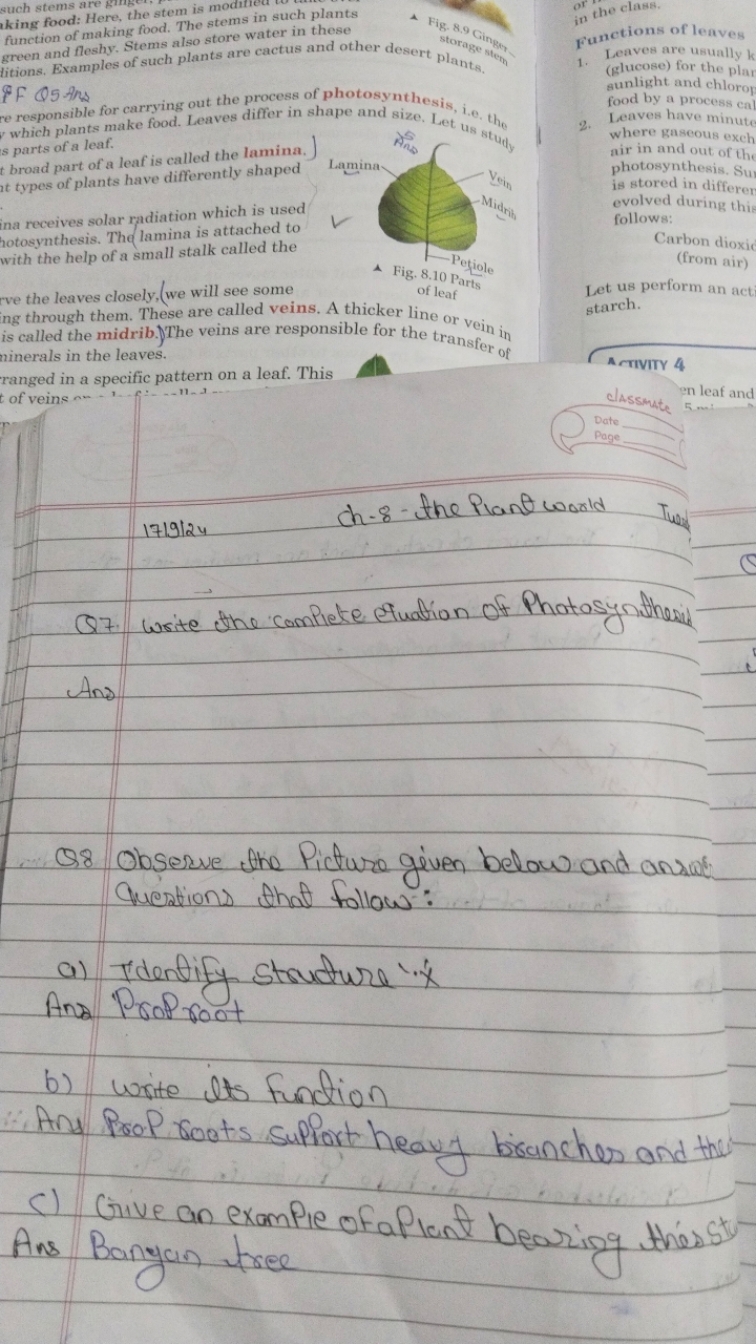 such stems are ginger,
aking food: Here, the stem is modified to
function of making food. The stems in such plants
green and fleshy. Stems also store water in these
ditions. Examples of such plants are cactus and other desert plants.
Fig. 8.9 Ginger
storage stem
Q5 Ans
re responsible for carrying out the process of photosynthesis, i.e. the
y which plants make food. Leaves differ in shape and size. Let us study
s parts of a leaf.
t broad part of a leaf is called the lamina.
nt types of plants have differently shaped
ina receives solar radiation which is used
hotosynthesis. The lamina is attached to
with the help of a small stalk called the
Ans
Lamina
Vein
Midrib
Petiole
Fig. 8.10 Parts
of leaf
rve the leaves closely, we will see some
ing through them. These are called veins. A thicker line or vein in
is called the midrib. The veins are responsible for the transfer of
minerals in the leaves.
ranged in a specific pattern on a leaf. This
t of veins
in the class.
Functions of leaves
1. Leaves are usually k
(glucose) for the plan
sunlight and chlorop
food by a process cal
2. Leaves have minute
where gaseous exch
air in and out of the
photosynthesis. Su
is stored in differen
evolved during this
follows:
Carbon dioxid
(from air)
Let us perform an acti
starch.
ACTIVITY 4
en leaf and
classmate
Date
Page
17/9/24
Ch-8-the Plant world
Q7. write the complete equation of Photosynthesis
Ans
Q8 Observe the Picture given below and answer
Questions that follow:
a) Identify structure 'x
Ans Prop root
b) write its function
Ans Prop roots support heavy branches and the
c) Give an example of a Plant bearing this st
Ans Banyan tree